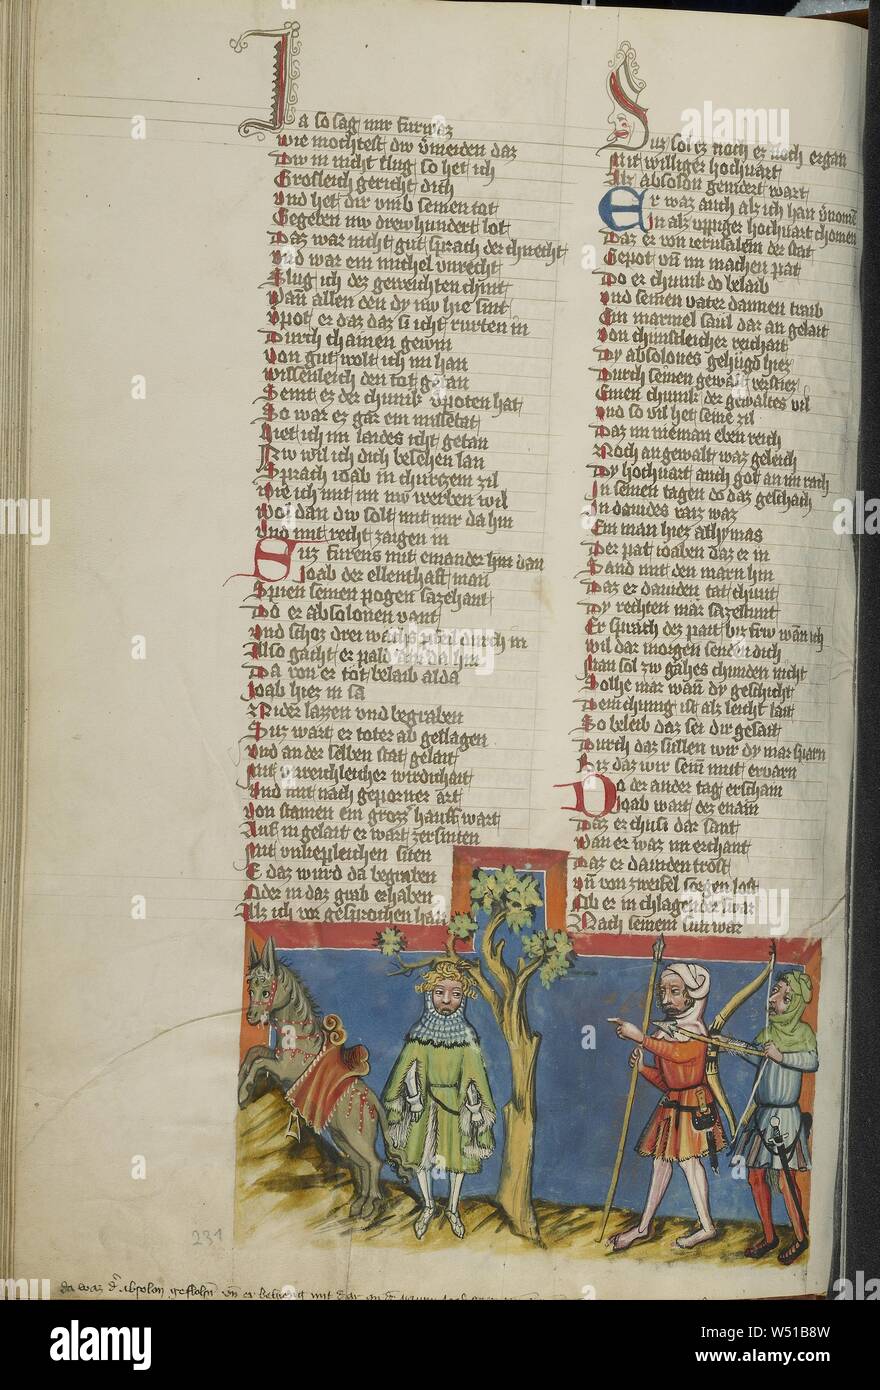 Ja so sag mir furwaz
wie mochtest dw v͛meiden daz
Dw in nicht slug so het ich
Grosleich gericht dich
Vnd het dir vmb seinen tot
Gegeben nw drew hundert lot
Daz war nicht gut sprach der chnecht
Vnd war ein michel vnrecht
Slug ich dez geweichten chint
Wan̄ allen den dy nw hie sint
Vpot er daz daz si icht rurten in
Durch chainen gewin
Von gut wolt ich im han
wissenleich den tot getan
Seint ez der chunik v͛poten hat
So war ez gar ein missetat
Hiet ich im laides icht getan
Nw wil ich dich besehen lan
Sprach ioab in churczem zil
wie ich mit im nw werben wil
wol dan dw solt mit mir da hin
Vnd mit recht zaigen in
Suz furens mit einander hin dan
Joab der ellenthaft man
Spien seinen pogen sazehant
Do er absolonen vant
Vnd schoz drei durch in
Also gacht er pald da hin
Da von er tot belaib alda
Joab hiez in sa
Nider lazzen vnd begraben
Suz wart er toter ab geslagen
Vnd an der selben stat gelait
Mit vnreichleicher wirdichait
Vnd nit nach geporner art
Von stainen ein grozz͛ hauff wart
Auf in gelait er wart zersniten
Mit vnkepleichen siten
E daz wurd da begraben
Oder in daz grab erhaben
Alz ich vor gesprochen han
Suz sol ez noch er noch ergan
Mit williger hochuart
Alz absolon gemdert wart
Er waz auch alz ich han v͛nome͞
In alz vppiger hochuart chomen
Daz er von ierusalem der stat
Gepot vn̄ im machen pat
Do er chunik do belaib
Vnd seinen vater dannen traib
Ein marmel saul dar an gelait
Von chunstleicher reichait
Dy absolones gehugd hiez
Durch seinen gewalt verstiez
Einen chunik der gewaltes vil
Vnd so vil het seine zil
Daz im nieman eben reich
Noch an gewalt waz geleich
Dy hochuart auch got an im rach
In seinen tagen do daz geschach
In dauides rait waz
Ein man hiez athymas
Der pat ioaben daz er in
Sand mit den marn hin
Daz er dauiden tat chunt
Dy rechten mar sazestunt
Er sprach dez pait biz frw wan̄ ich
wil dar morgen senden dich
Man sol zw gahes chunden nicht
Solhe mar wan̄ dy geschicht
Dem chunig ist alz leicht lait
So beleib daz sei dir gesait
Durch daz sullen wir dy mar sparn
Biz daz wir sein mit ervarn
Do der ander tag erschain
Joab wart dez enain
Daz er chusi dar sant
Wan er waz im erchant
Daz er dauiden trost
Vn̄ von zweifel sorgen lost
Ob er in chlagender swar
Nach seinem sun war
231
da waz d͛ absolon geflohn̄ vn̄ er behieng mit
alamy stock photo
alamy
W51B8W
www.alamy.com